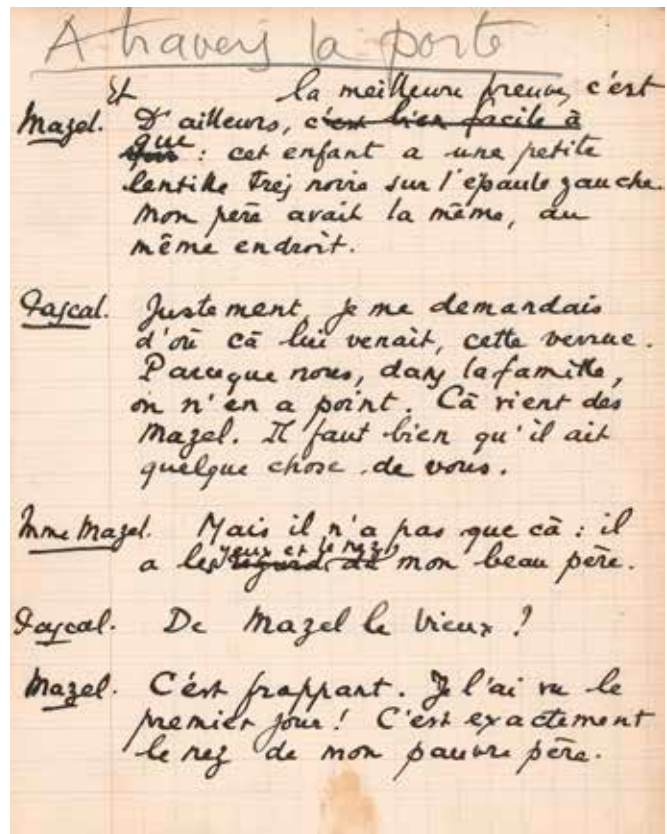 A travers la porte
Et la meilleure preuve, c'est
Mazel. D'ailleurs, c'est bien facile à
que : cet enfant a une petite
lentille très noire sur l'épaule gauche.
Mon père avait la même, au
même endroit.
Pascal. Justement, je me demandais
d'où cā lui venait, cette verrue.
Parceque nous, dans la famille,
on n'en a point. Cā vient des
Mazel. Il faut bien qu'il ait
quelque chose de vous.
Mme Mazel. Mais il n'a pas que cā : il
yeux et le nez
a les regard de mon beau père.
Pascal. De Mazel le vieux ?
Mazel. C'est frappant. Je l'ai vu le
premier jour ! C'est exactement
le nez de mon pauvre père.